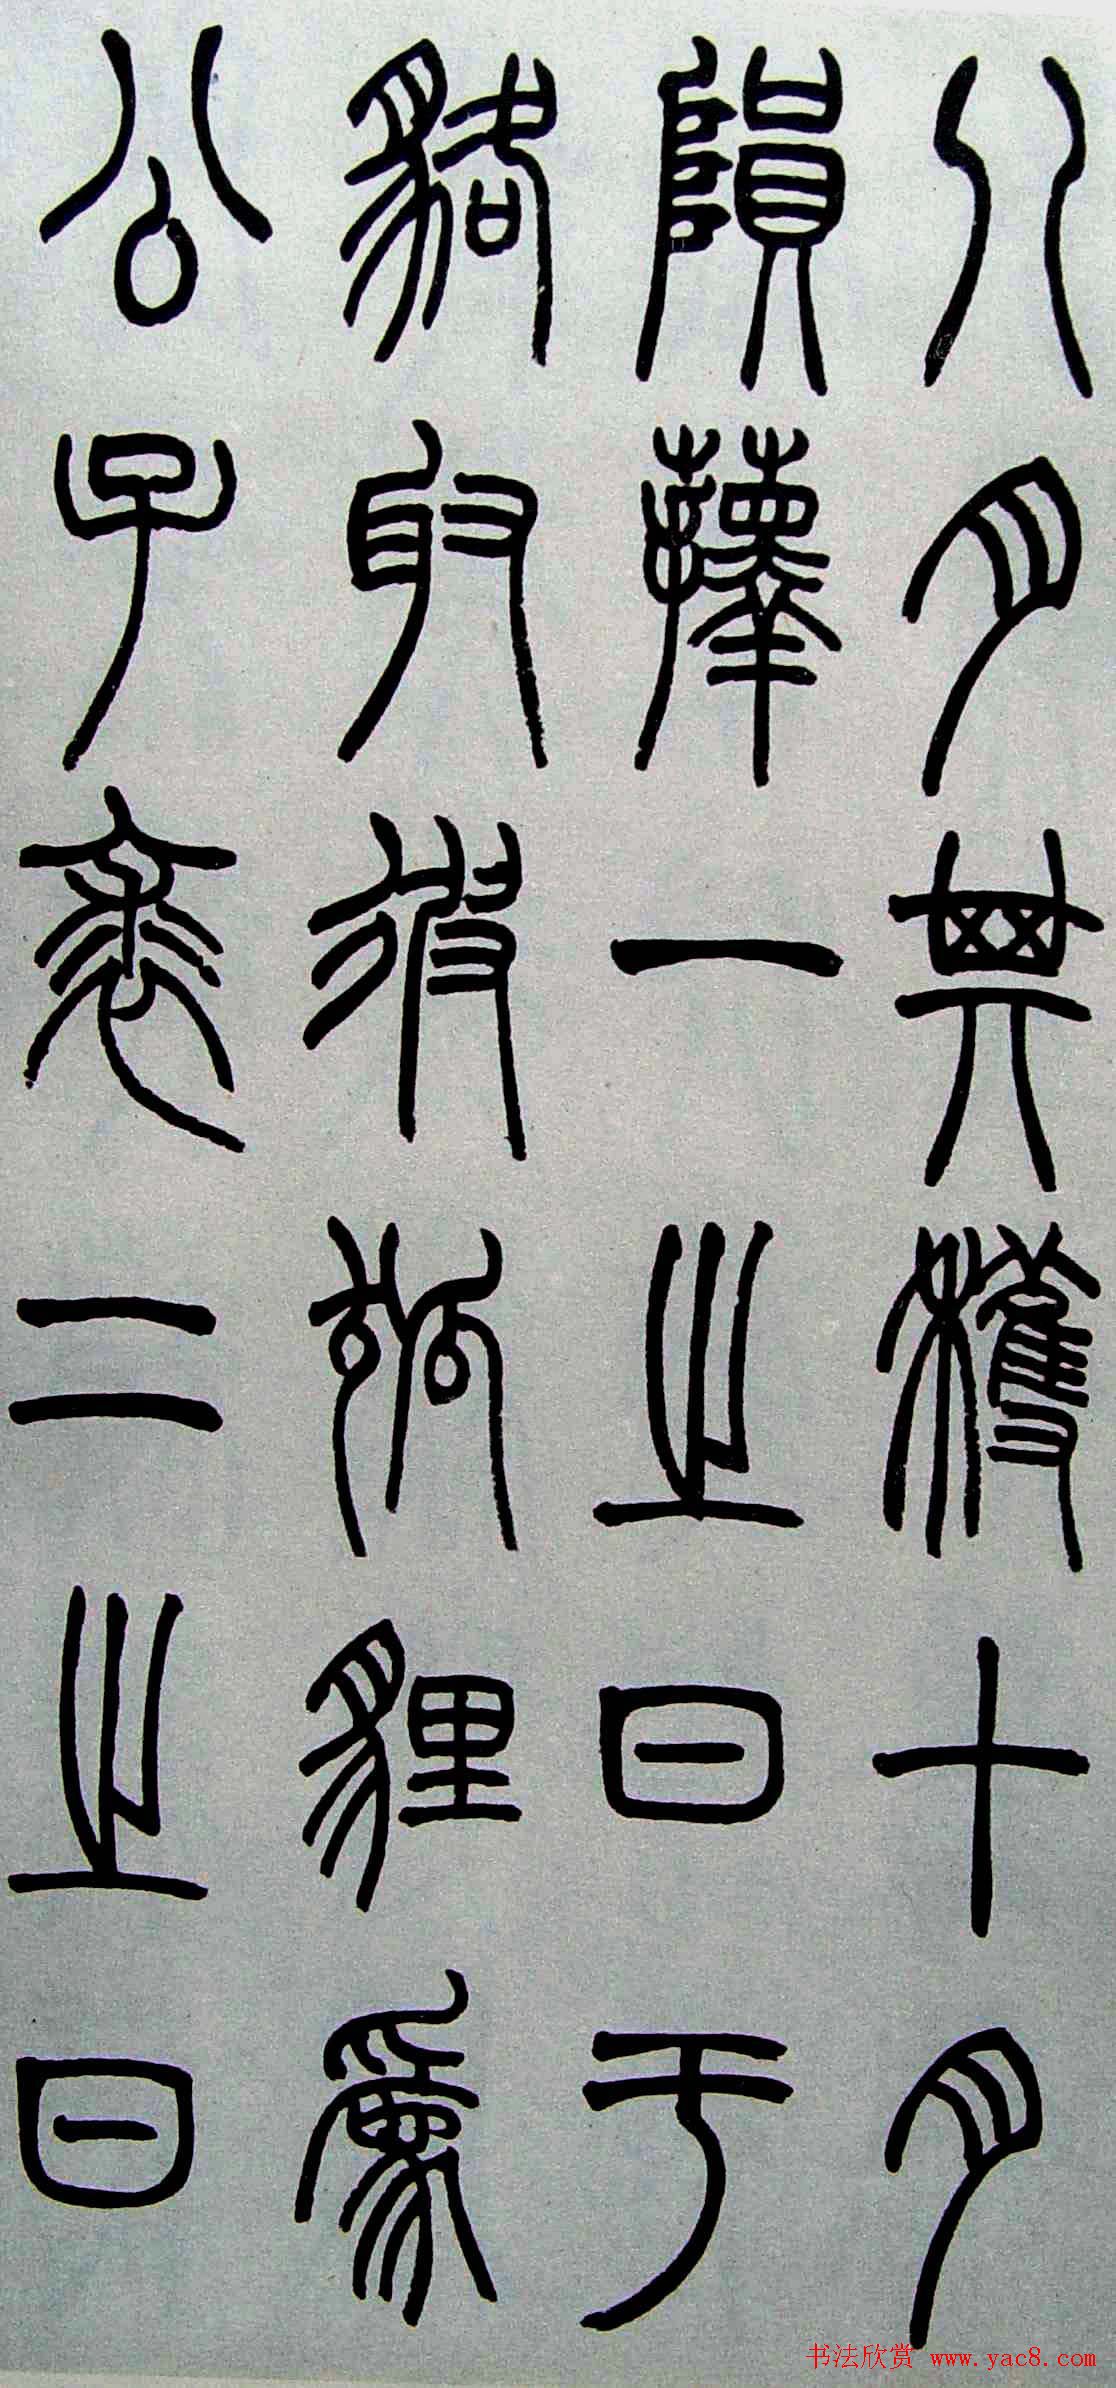 八月其穫十月
隕蘀一之日于
貉取彼狐貍為
公子裘二之日
书法欣赏 www.yac8.com